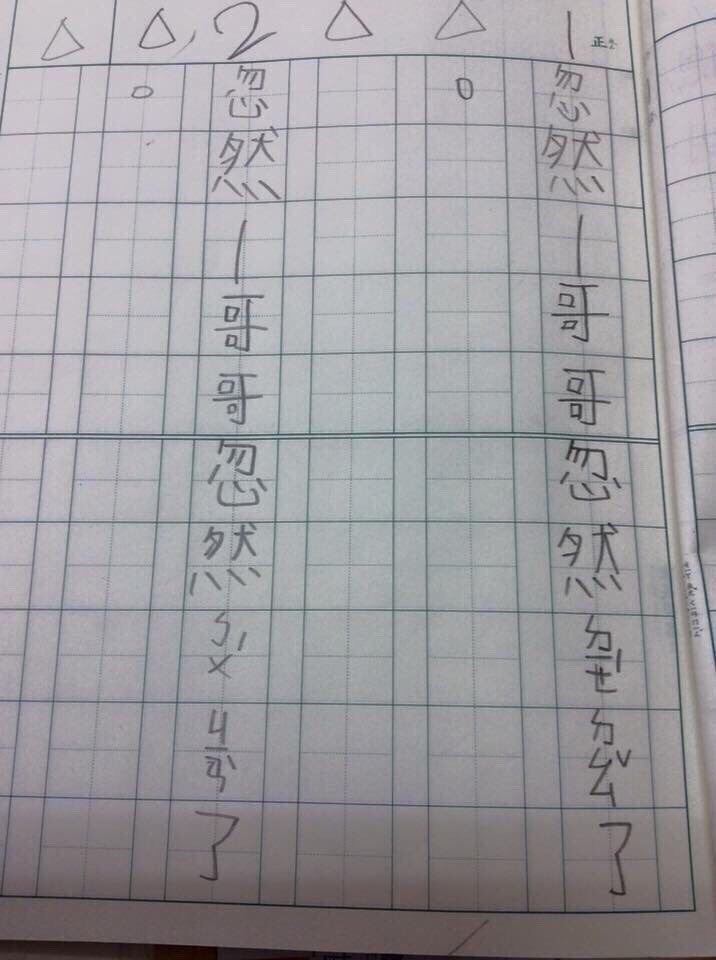 1
忽然—哥哥忽然ㄉㄧㄝˊㄉㄠˇ了
2
忽然—哥哥忽然ㄅㄨˊㄐㄧㄢˋ了